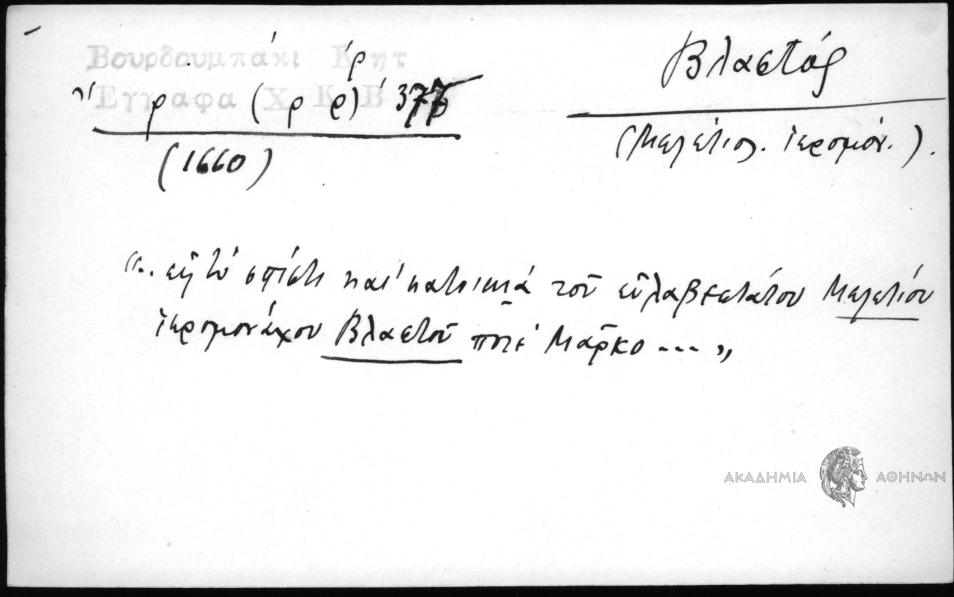 Βουρδουμπάκι Κρητ
Έγγραφα (Χ Κ Β 377
(1660)
Βλαστός
(Μελέτιος. ἱερομόν.).
"... εἰς τὸ σπίτι καὶ κατοικιά τοῦ εὐλαβεστάτου Μελετίου
ἱερομονάχου Βλαστοῦ ποτὲ Μᾶρκο ... "
ΑΚΑΔΗΜΙΑ ΑΘΗΝΩΝ